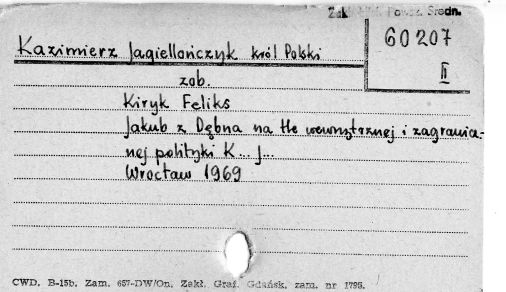 Zakł. Powsz. Średn.
60207
II
Kazimierz Jagiellończyk król Polski
zob.
Kiryk Feliks
Jakub z Dębna na tle wewnętrznej i zagranicz-
nej polityki K... J...
Wrocław 1969
CWD. B-15b. Zam. 657-DW/On. Zakł. Graf. Gdańsk. zam. nr 1795.